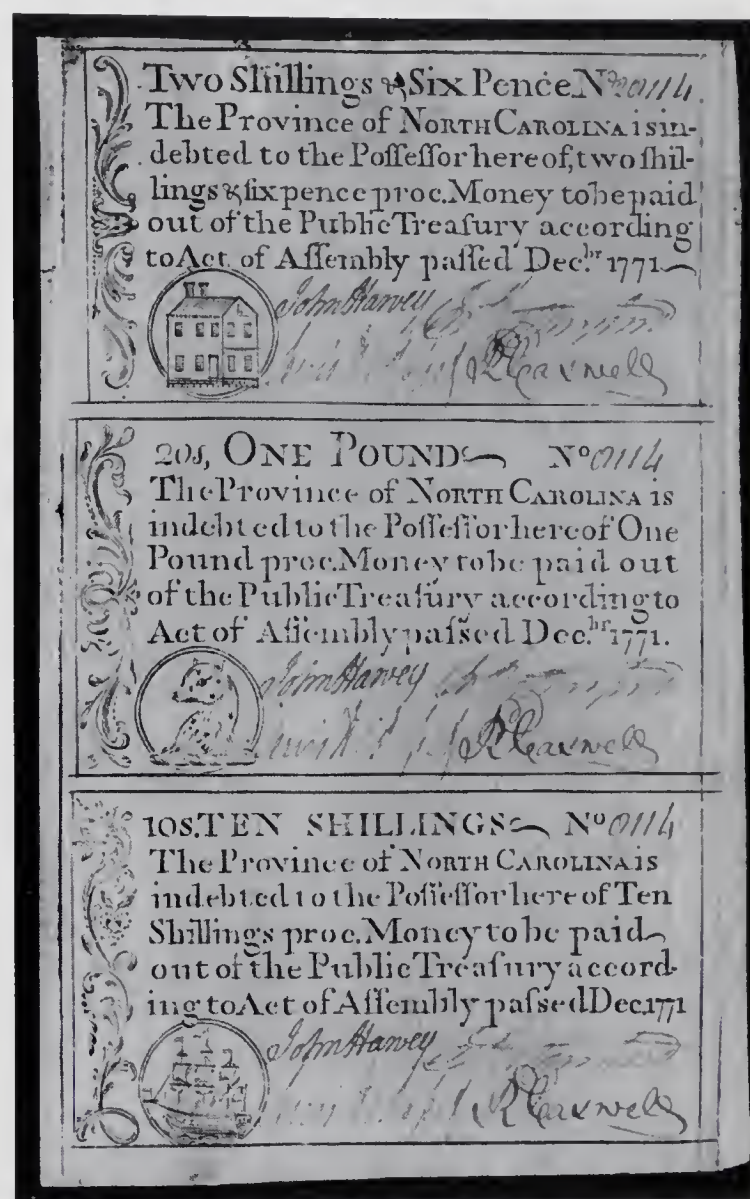 Two Shillings & Six Pence No 20114
The Province of NORTH CAROLINA is in-
debted to the Poſſeſſor hereof, two ſhil-
lings & ſix pence proc. Money to be paid
out of the Public Treaſury according
to Act of Aſſembly paſſed Dec.br 1771
John Harvey
R Caswell
20s, ONE POUND No 0114
The Province of NORTH CAROLINA is
indebted to the Poſſeſſor hereof One
Pound proc. Money to be paid out
of the Public Treaſury according to
Act of Aſſembly paſsed Dec.br 1771.
John Harvey
R Caswell
10s. TEN SHILLINGS No 0114
The Province of NORTH CAROLINA is
indebted to the Poſſeſſor here of Ten
Shillings proc. Money to be paid
out of the Public Treaſury accord-
ing to Act of Aſſembly paſsed Dec. 1771
John Harvey
R Caswell